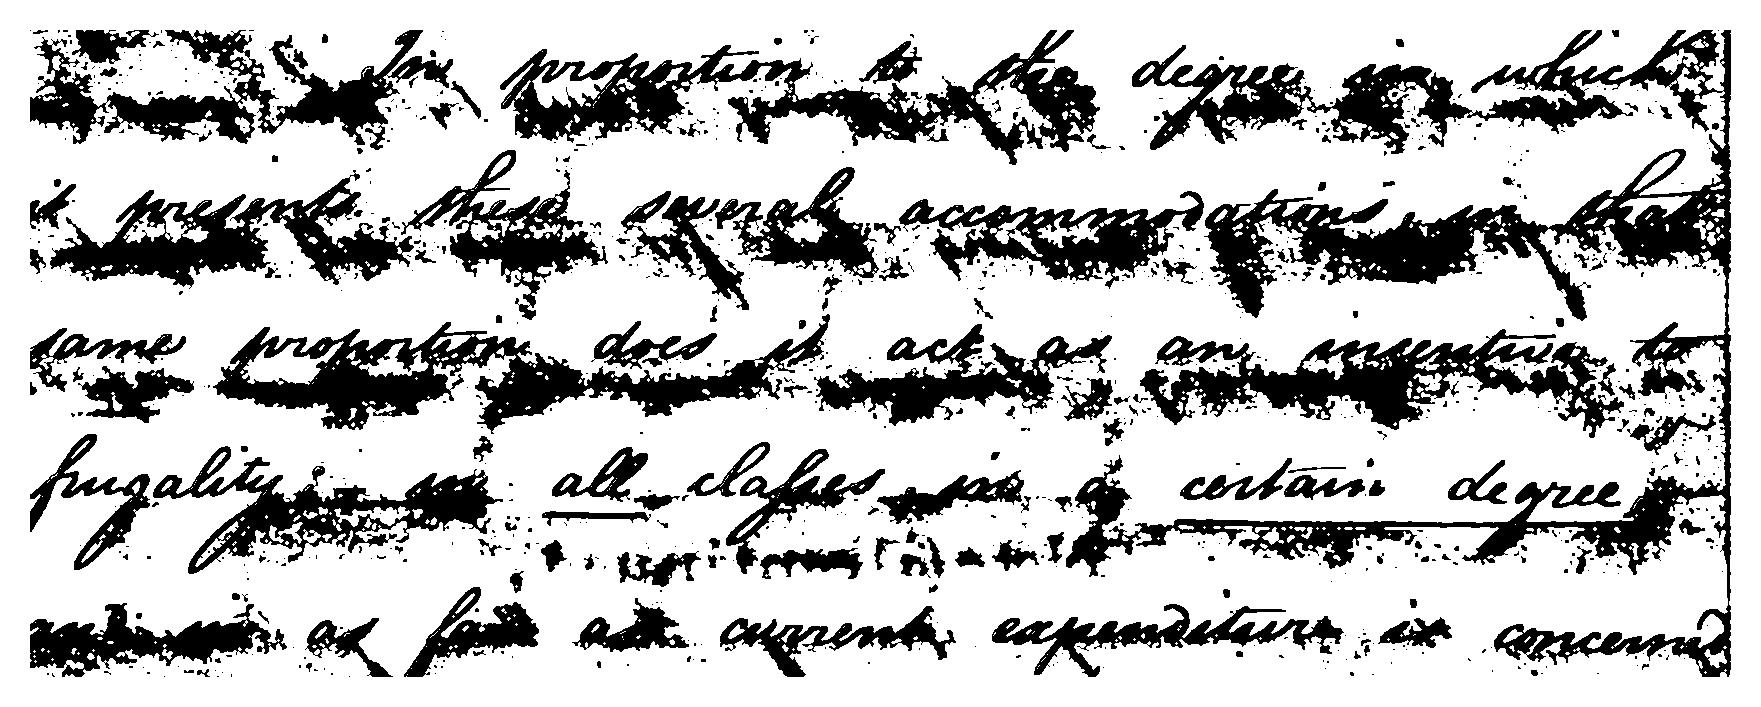 In proportion to the degree in which
it presents these several accommodations, in that
same proportion does it act as an incentive to
frugality: in all classes in a certain degree
and in as far as current expenditure is concerned